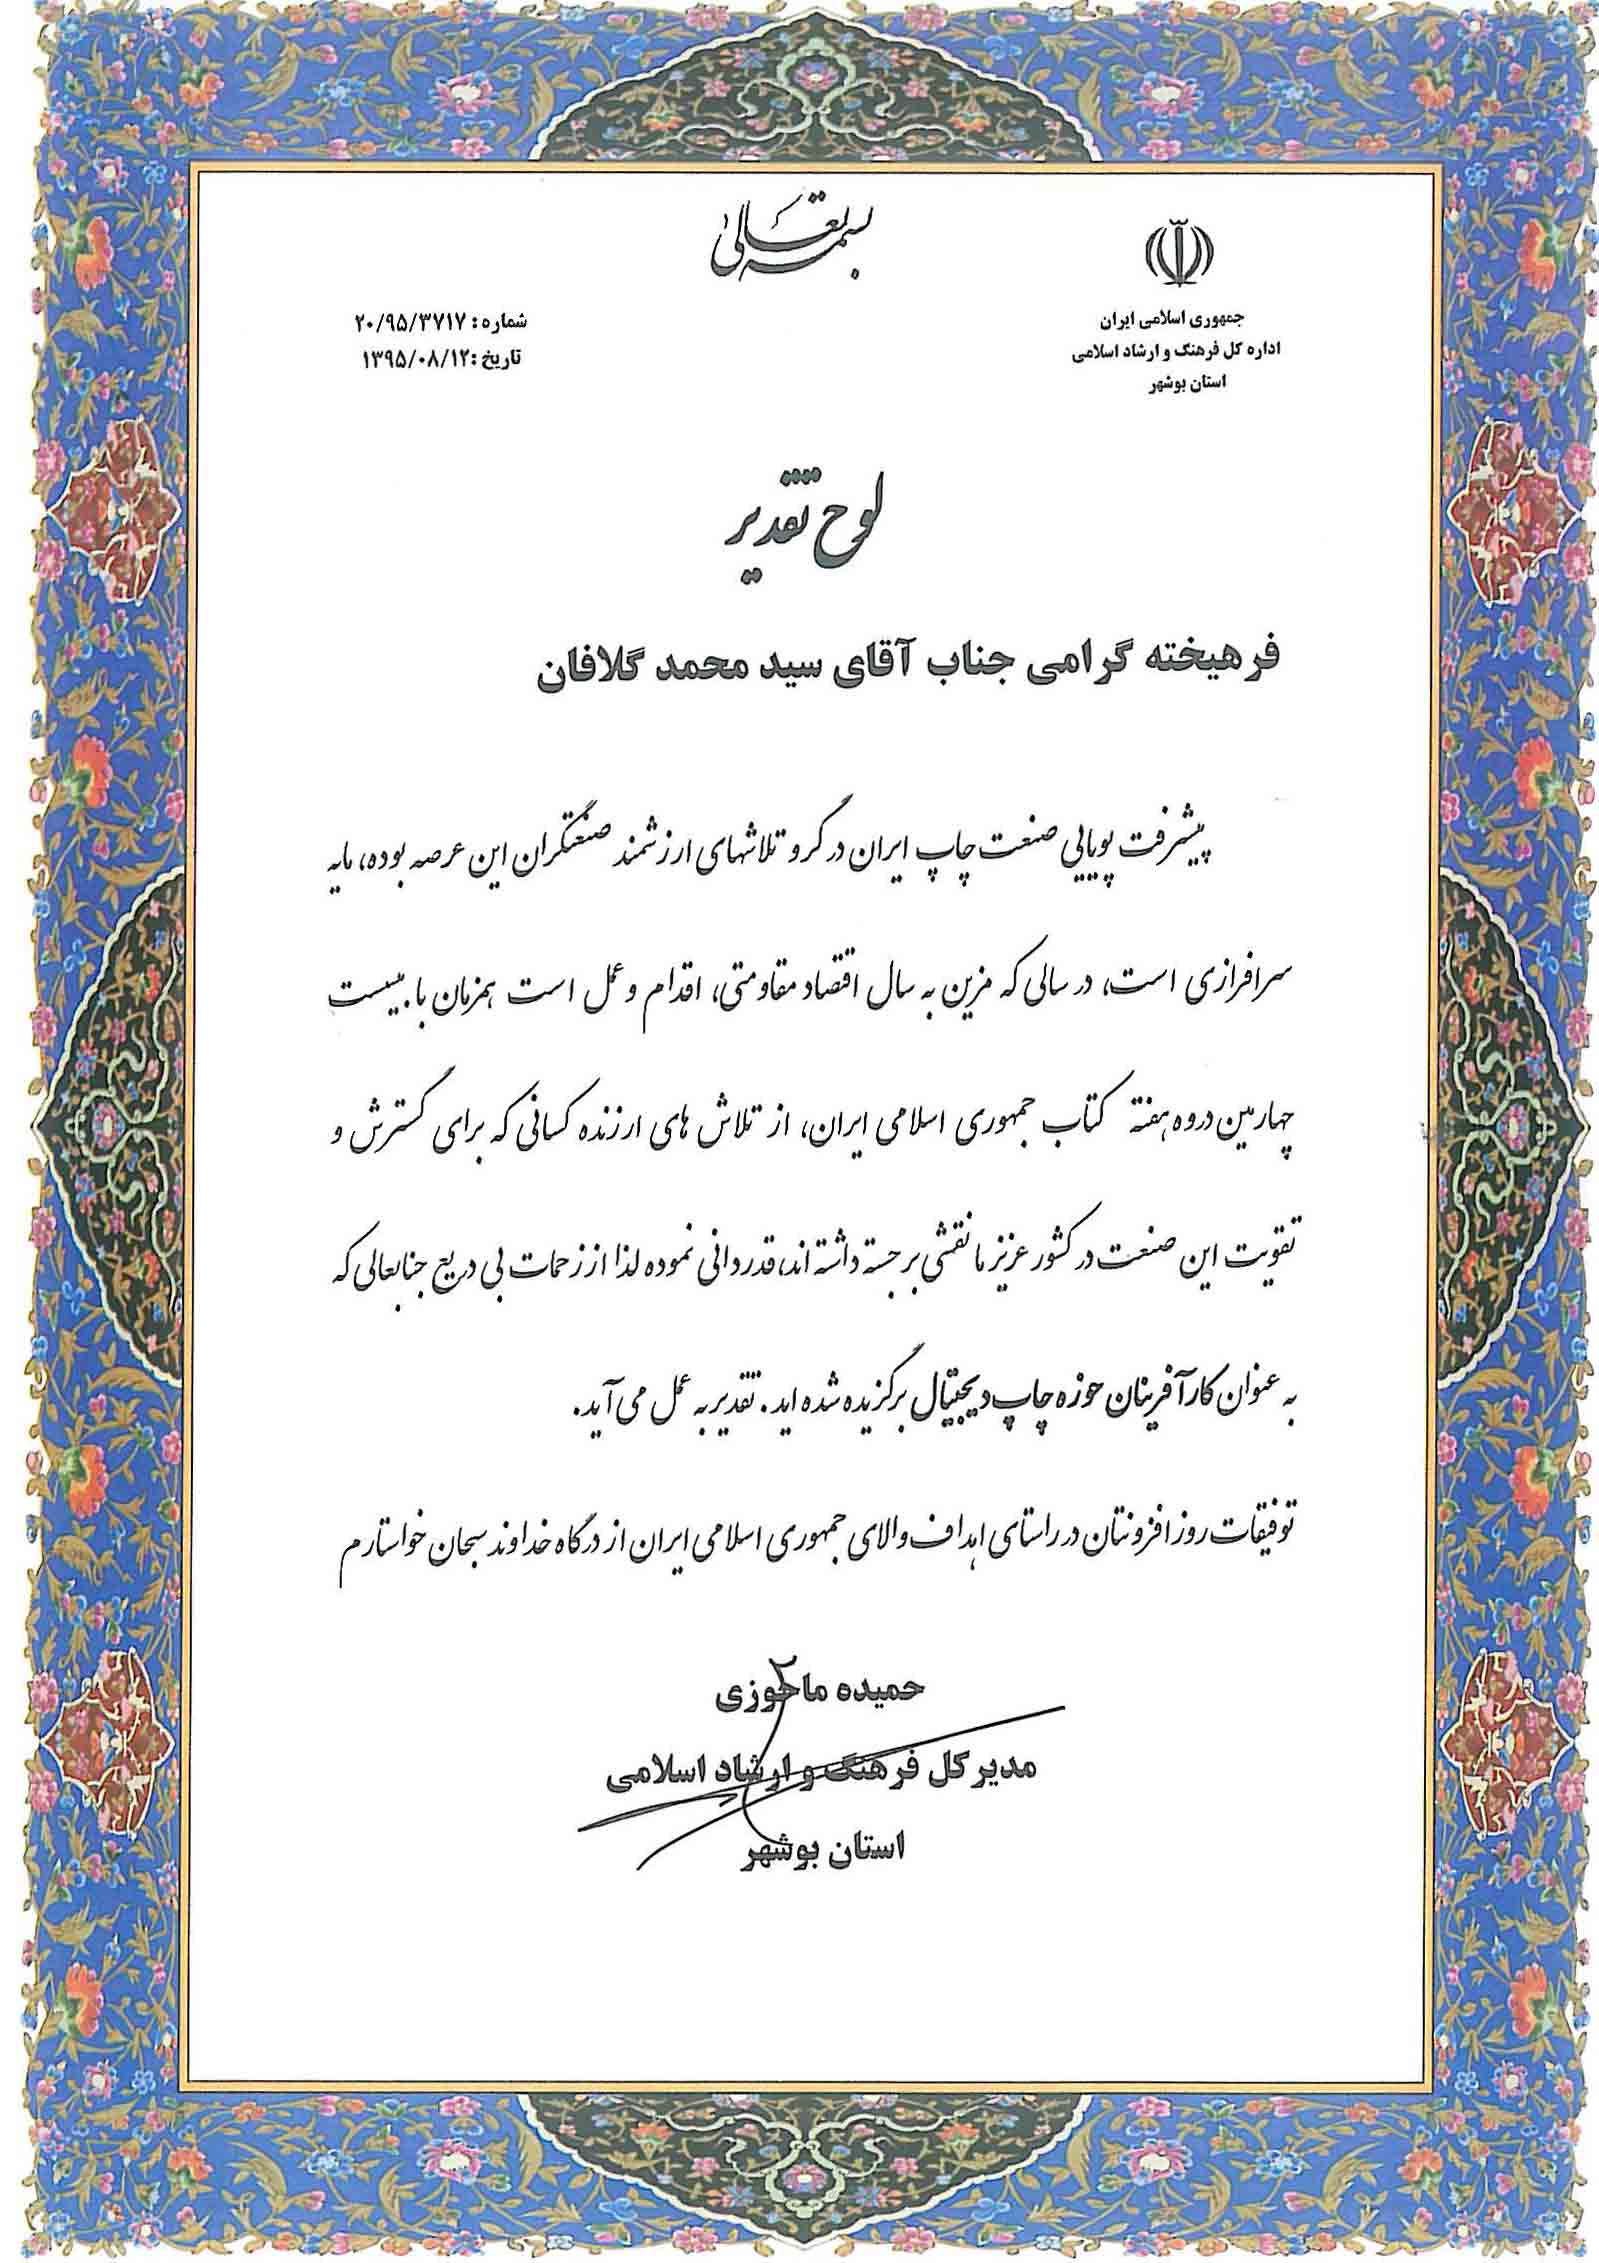 بسمه تعالی
جمهوری اسلامی ایران
اداره کل فرهنگ و ارشاد اسلامی
استان بوشهر
شماره : ۲۰/۹۵/۳۷۱۷
تاریخ :۱۳۹۵/۰۸/۱۲
لوح تقدیر
فرهیخته گرامی جناب آقای سید محمد گلافان
پیشرفت پویایی صنعت چاپ ایران در گرو تلاشهای ارزشمند صنعتگران این عرصه بوده، مایه
سرافرازی است، در سالی که مزین به سال اقتصاد مقاومتی، اقدام و عمل است همزمان با بیست
چهارمین دروه هفته کتاب جمهوری اسلامی ایران، از تلاش های ارزنده کسانی که برای گسترش و
تقویت این صنعت در کشور عزیز ما نقشی برجسته داشته اند، قدردانی نموده لذا از زحمات بی دریغ جنابعالی که
به عنوان کارآفرینان حوزه چاپ دیجیتال برگزیده شده اید. تقدیر به عمل می آید.
توفیقات روز افزونتان در راستای اهداف والای جمهوری اسلامی ایران از درگاه خداوند سبحان خواستارم
حمیده ماحوزی
مدیر کل فرهنگ و ارشاد اسلامی
استان بوشهر